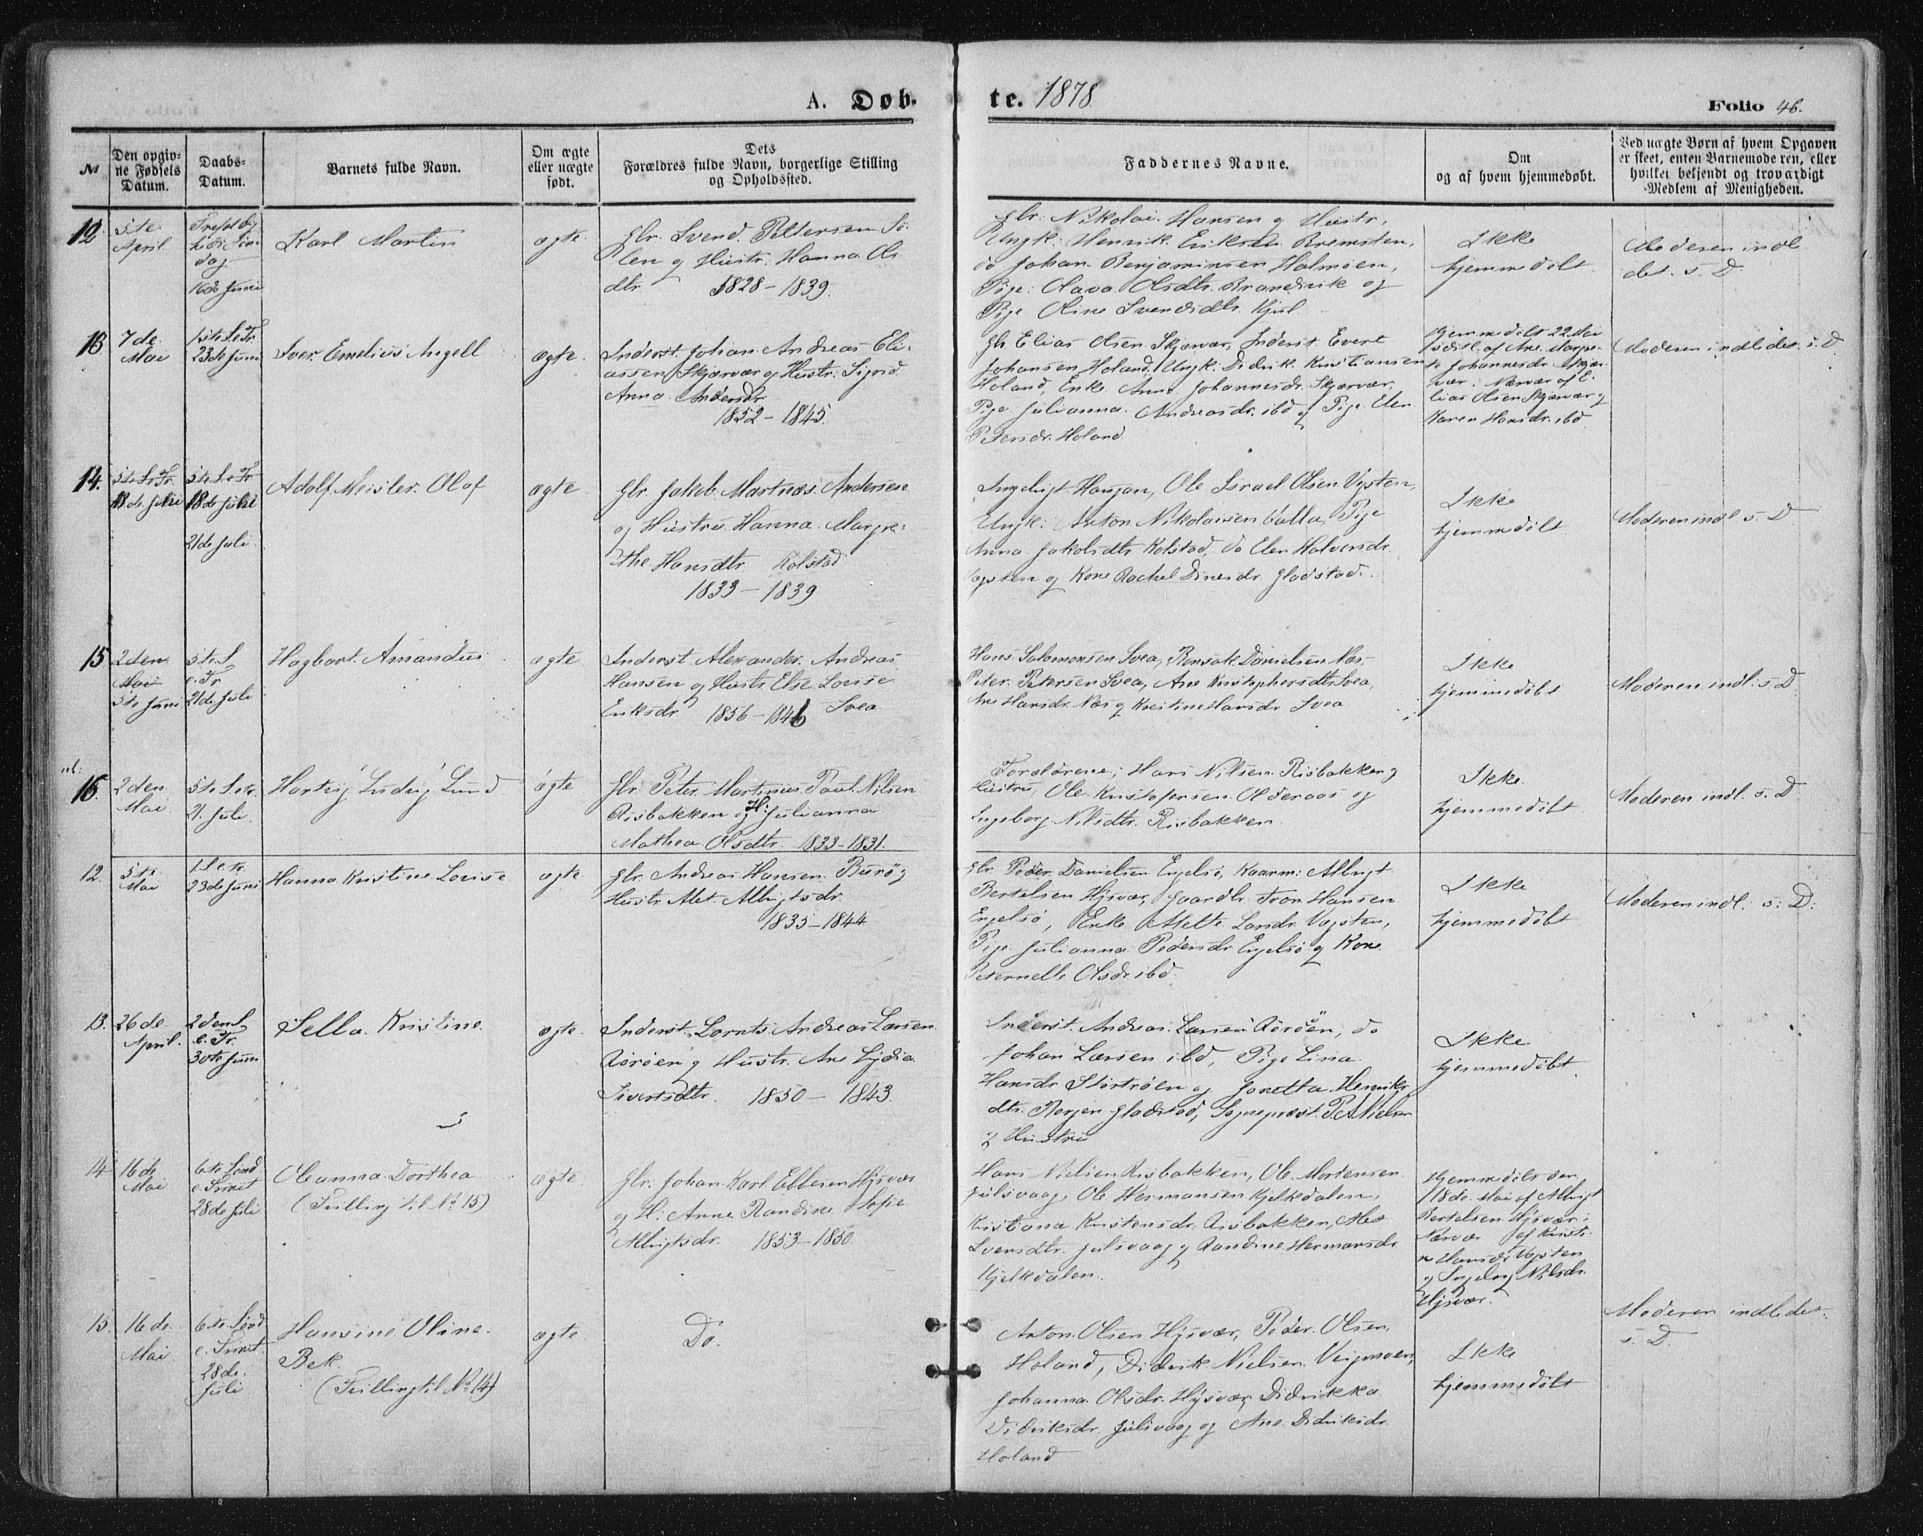 A. Døb-
te. 1878
Folio 46.
№
Den opgiv-
ne Fødsels
Datum.
Daabs-
Datum.
Barnets fulde Navn.
Om ægte
eller uægte
født.
Dets
Forældres fulde Navn, borgerlige Stilling
og Opholdssted.
Faddernes Navne.
Om
og af hvem hjemmedøbt.
Ved uægte Børn af hvem Opgaven
er skeet, enten Barnemoderen, eller
hvilket bekjendt og troværdigt
Medlem af Menigheden.
12
5te
April
dag
16de Juni
Karl Martin
ægte
Gbr. Svend Pettersen Sö-
len og Hustr: Hanna Ols
dtr. 1828 – 1839.
Gbr: Nikolai Hansen og Hustr,
Ungk: Henrik Eriksen Bremsten,
do Johan Benjaminsen Holmøen,
Pige: Olava Olsdtr. Brandvik og
Pige Oline Svendsdtr.
Ikke
hjemmedøbt
Moderen indle-
det. s. D
13
7de
Mai
1ste S.e.Tr.
23de Juni
Iver Emelius Angell
ægte
Inderst. Johan Andreas Eli-
assen Skjærvær og Hustr: Sigrid
Anna Andersdr.
1852 – 1845.
Gb Elias Olsen Skjærvær, Inderst Evert
Johansen Holand, Ungk: Didrik Kristiansen
Holand, Enke Anne Johannesdr. Skjærvær,
Pige Julianna Andreasdr. ibd og Pige Elen
Petersdr. Holand
Hjemmedøbt 22 Mai
af Ane Margre-
te Johannesdr. Skjær-
vær; Nærvær af E-
lias Olsen Skjærvær og
Karen Hansdr. ibd
Moderen indledet. s. D
14.
5te S.e.Tr.
18de Juli
5te S.e.Tr.
18de Juli
21de Juli
Adolf Meisler Olaf
ægte
Gbr. Jakob Martnæs Andersen
og Hustru Hanna Margre-
the Hansdtr Kolstad
1833 – 1839
Ole Israel Olsen Vegsten,
Ungk: Anton Nikolaisen Valla, Pige
Anna Jakobsdtr. Kolstad, do Elen Halversdr.
Vegsten og Kone Rachel Dinesdr. Gladstad.
Ikke
hjemmedøbt
Moderen indl. s. D
15
2den
Mai
5te Juni
5te S.
e. Tr.
21de Juli
Hagbart Amandus
ægte
Inderst Alexander Andreas
Hansen og Hustr. Else Lovise
Eriksdr 1856 – 1846 Svea
Hans Salomonsen Svea, Bonsak Danielsen Næs,
Peter Petersen Svea, Ane Kristophersdtr. Svea,
Ane Hansdr. Næs og Kristine Hansdr. Svea
Ikke
hjemmedøbt
Moderen indl. s. D.
16.
2den
Mai
5te S.e.tr.
21. Juli
Hartvig Ludvig Lund
ægte
Gbr. Peter Martinius Paul Nilsen
Risbakken og H: Julianna
Mathea Olsdtr. 1833–1831.
Forældrene; Hans Nilsen Risbakken og
Hustru, Ole Kristofersen Olderaas og
Ingeborg Nilsdtr. Risbakken.
Ikke
hjemmedøbt
Moderen indl. s. D.
12.
5te
Mai
1 S.e.tr.
23de Juni
Hanna Kristine Lovise
ægte
Gbr. Andreas Hansen Burö og
Hustr. Alet Albrigtsdr.
1835 – 1844
Gbr. Peder Danielsen Engelsö, Kaarm: Albrigt
Bertelsen Hysvær, Gaardbr. Tron Hansen
Engelsö, Enke Alette Larsdr. Vegsten,
Pige Julianna Pedersdr. Engelsö og Kone
Peternelle Olsdr. ibd.
Ikke
hjemmedøbt
Moderen indl: s: D:
13.
26de
April.
2den S.
e. Tr.
30te Juni
Sella Kristine
ægte
Inderst. Lornts Andreas Larsen
Rörøen og Hustr. Ane Lydia
Sivertsdtr. 1850 – 1843.
Inderst. Andreas Larsen Rörøen, do
Johan Larsen ibd, Pige Lina
Hansdr. Störtrøen og Jonetta Henriks
dtr. Gladstad, Sognepræst P. Nielsen
& Hustru
Ikke
hjemmedøbt.
14
16de
Mai
6te Sönd
e. Trinit
28de Juli
Oleanna Dorthea
(Tvilling til No 15)
ægte.
Gbr. Johan Karl Ebbesen Hysvær
og H: Anne Randine Sofie
Albrigtsdr. 1853 – 1850.
Hans Nielsen Risbakken, Ole Mortensen
Julsvaag, Ole Hermansen Kjelkdalen,
Kristiana Kristensdr. Risbakken, Alet
Sversdtr. Julsvaag og Randine Hermansdr
Kjelkdalen.
Hjemmedøbt den
18de Mai af Albrigt
Bertelsen Hysvær i
Nærvær af Kristi-
ne Hansdr Vegsten
og Ingeborg Nilsdr.
Hysvær.
15.
16de
Mai
6te Sönd
e. Trinit.
28de
Juli
Hansine Oline
Bek.
(Tvilling til No 14)
ægte
Do.
Anton Olsen Hysvær, Peder Olsen
Holand, Didrik Nielsen
Johanna Olsdr. Hysvær, Didrikka
Didriksdr. Julsvaag og Ane Didriksdr.
Holand
Ikke
hjemmedøbt
Moderen indledet.
s. D